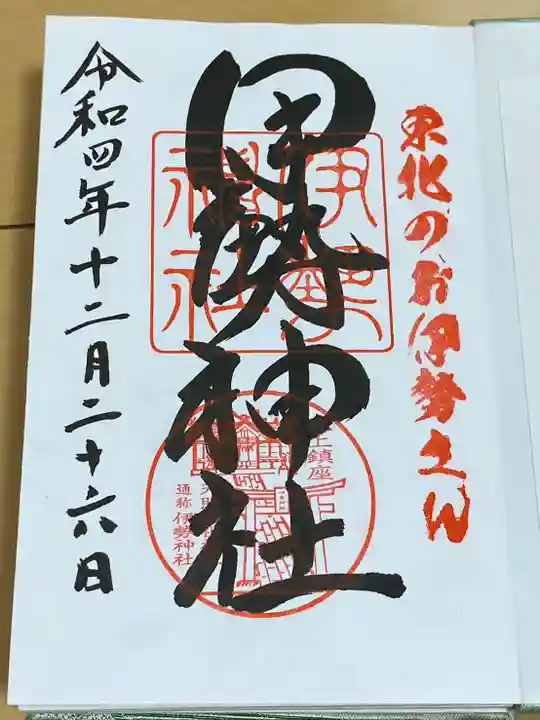 東北のお伊勢さん
伊勢神社
伊勢
神社
鎮座
通称 伊勢神社
令和四年十二月二十六日